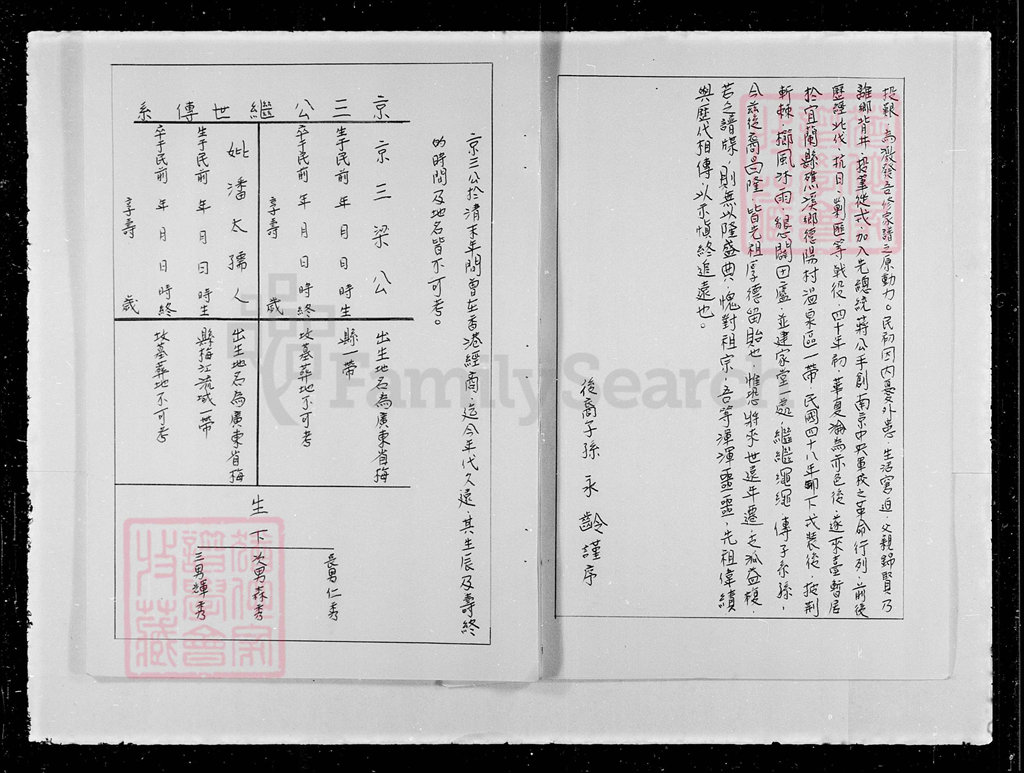 投艱,為激發吾修家譜之原動力。民初因內憂外患,生活窘迫,父親歸賢乃
離鄉背井,投筆從戎,加入先總統蔣公手創南京中央軍校之革命行列,前後
歷經北伐、抗日、剿匪等戰役,四十年初,華夏淪為赤色後,遂來臺暫居
於宜蘭縣礁溪鄉德陽村溫泉區一帶,民國四十八年卸下戎裝後,披荆
斬棘,櫛風沐雨,墾闢田廬,並建家堂一處,繼繼繩繩,傳子系孫,
今茲後裔昌隆,皆先祖厚德留貽也,惟恐將來世遠年遷,支派益複
若乏譜牒,則無以隆盛典,愧對祖宗,吾等渾渾噩噩,先祖偉績
與歷代相傳,以示慎終追遠也。
後裔子孫 永 齡 謹 序
京三公於清末年間曾在香港經商,迄今年代久遠,其生辰及壽終
的時間及地名皆不可考。
京三公繼世傳系
京三梁公
生于民前 年 月 日 時生
卒于民前 年 月 日 時終
享壽 歲
出生地名為廣東省梅
縣一帶
攻墓葬地不可考
妣潘太孺人
生于民前 年 月 日 時生
卒于民前 年 月 日 時終
享壽 歲
出生地名為廣東省梅
縣梅江流域一帶
攻墓葬地不可考
生下
長男仁秀
次男森秀
三男輝秀
FamilySearch